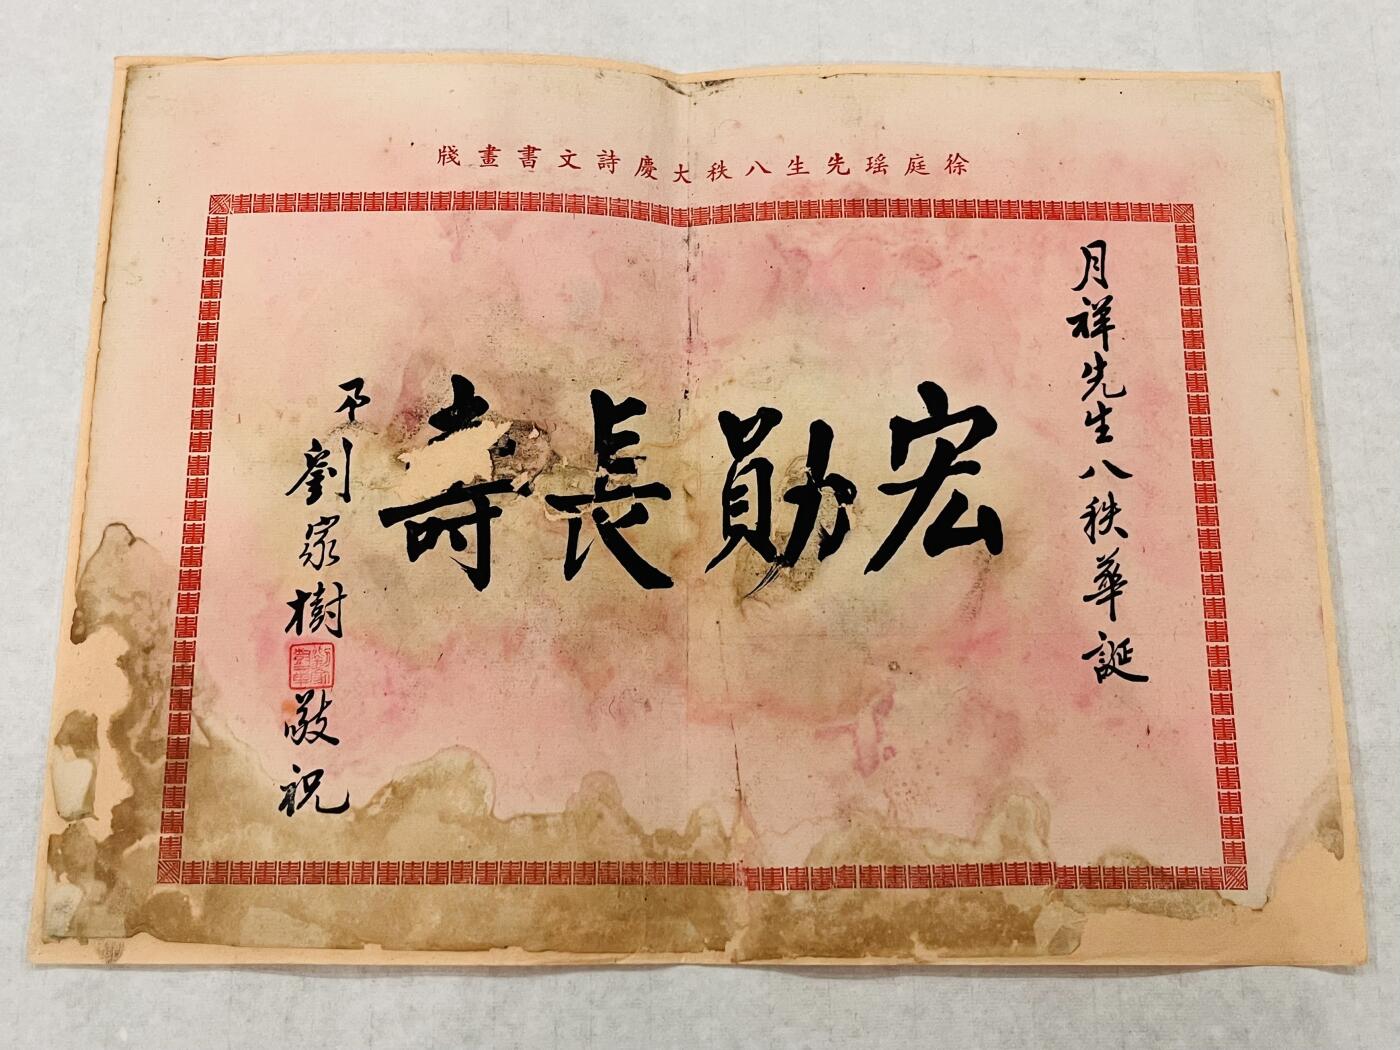 徐庭瑤先生八秩大慶詩文書畫牋
月祥先生八秩華誕
宏勛長壽
劉家樹
敬祝